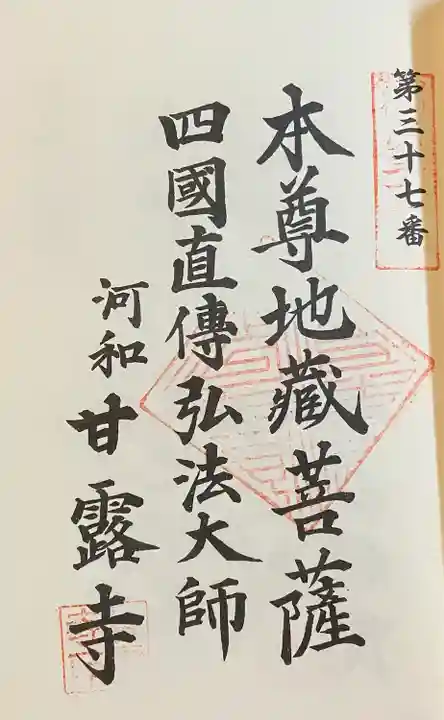 第三十七番
本尊地藏菩薩
四國直傳弘法大師
河和甘露寺